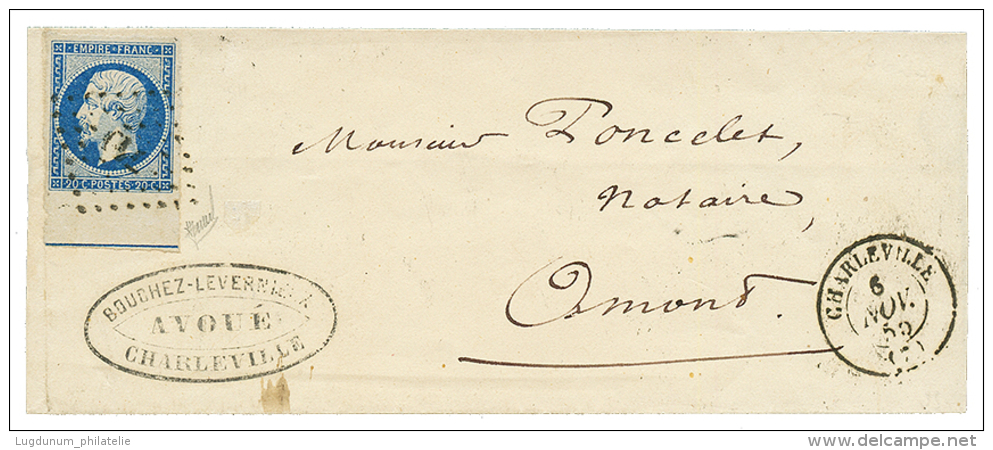 EMPIRE FRANC
20 C. POSTES 20 C.
Monsieur Poncelet,
Notaire,
Omont.
BOUCHEZ-LEVERNIEUX
AVOUÉ
CHARLEVILLE
CHARLEVILLE
6
NOV.
55
Lugdunum_philatelie
www.delcampe.net